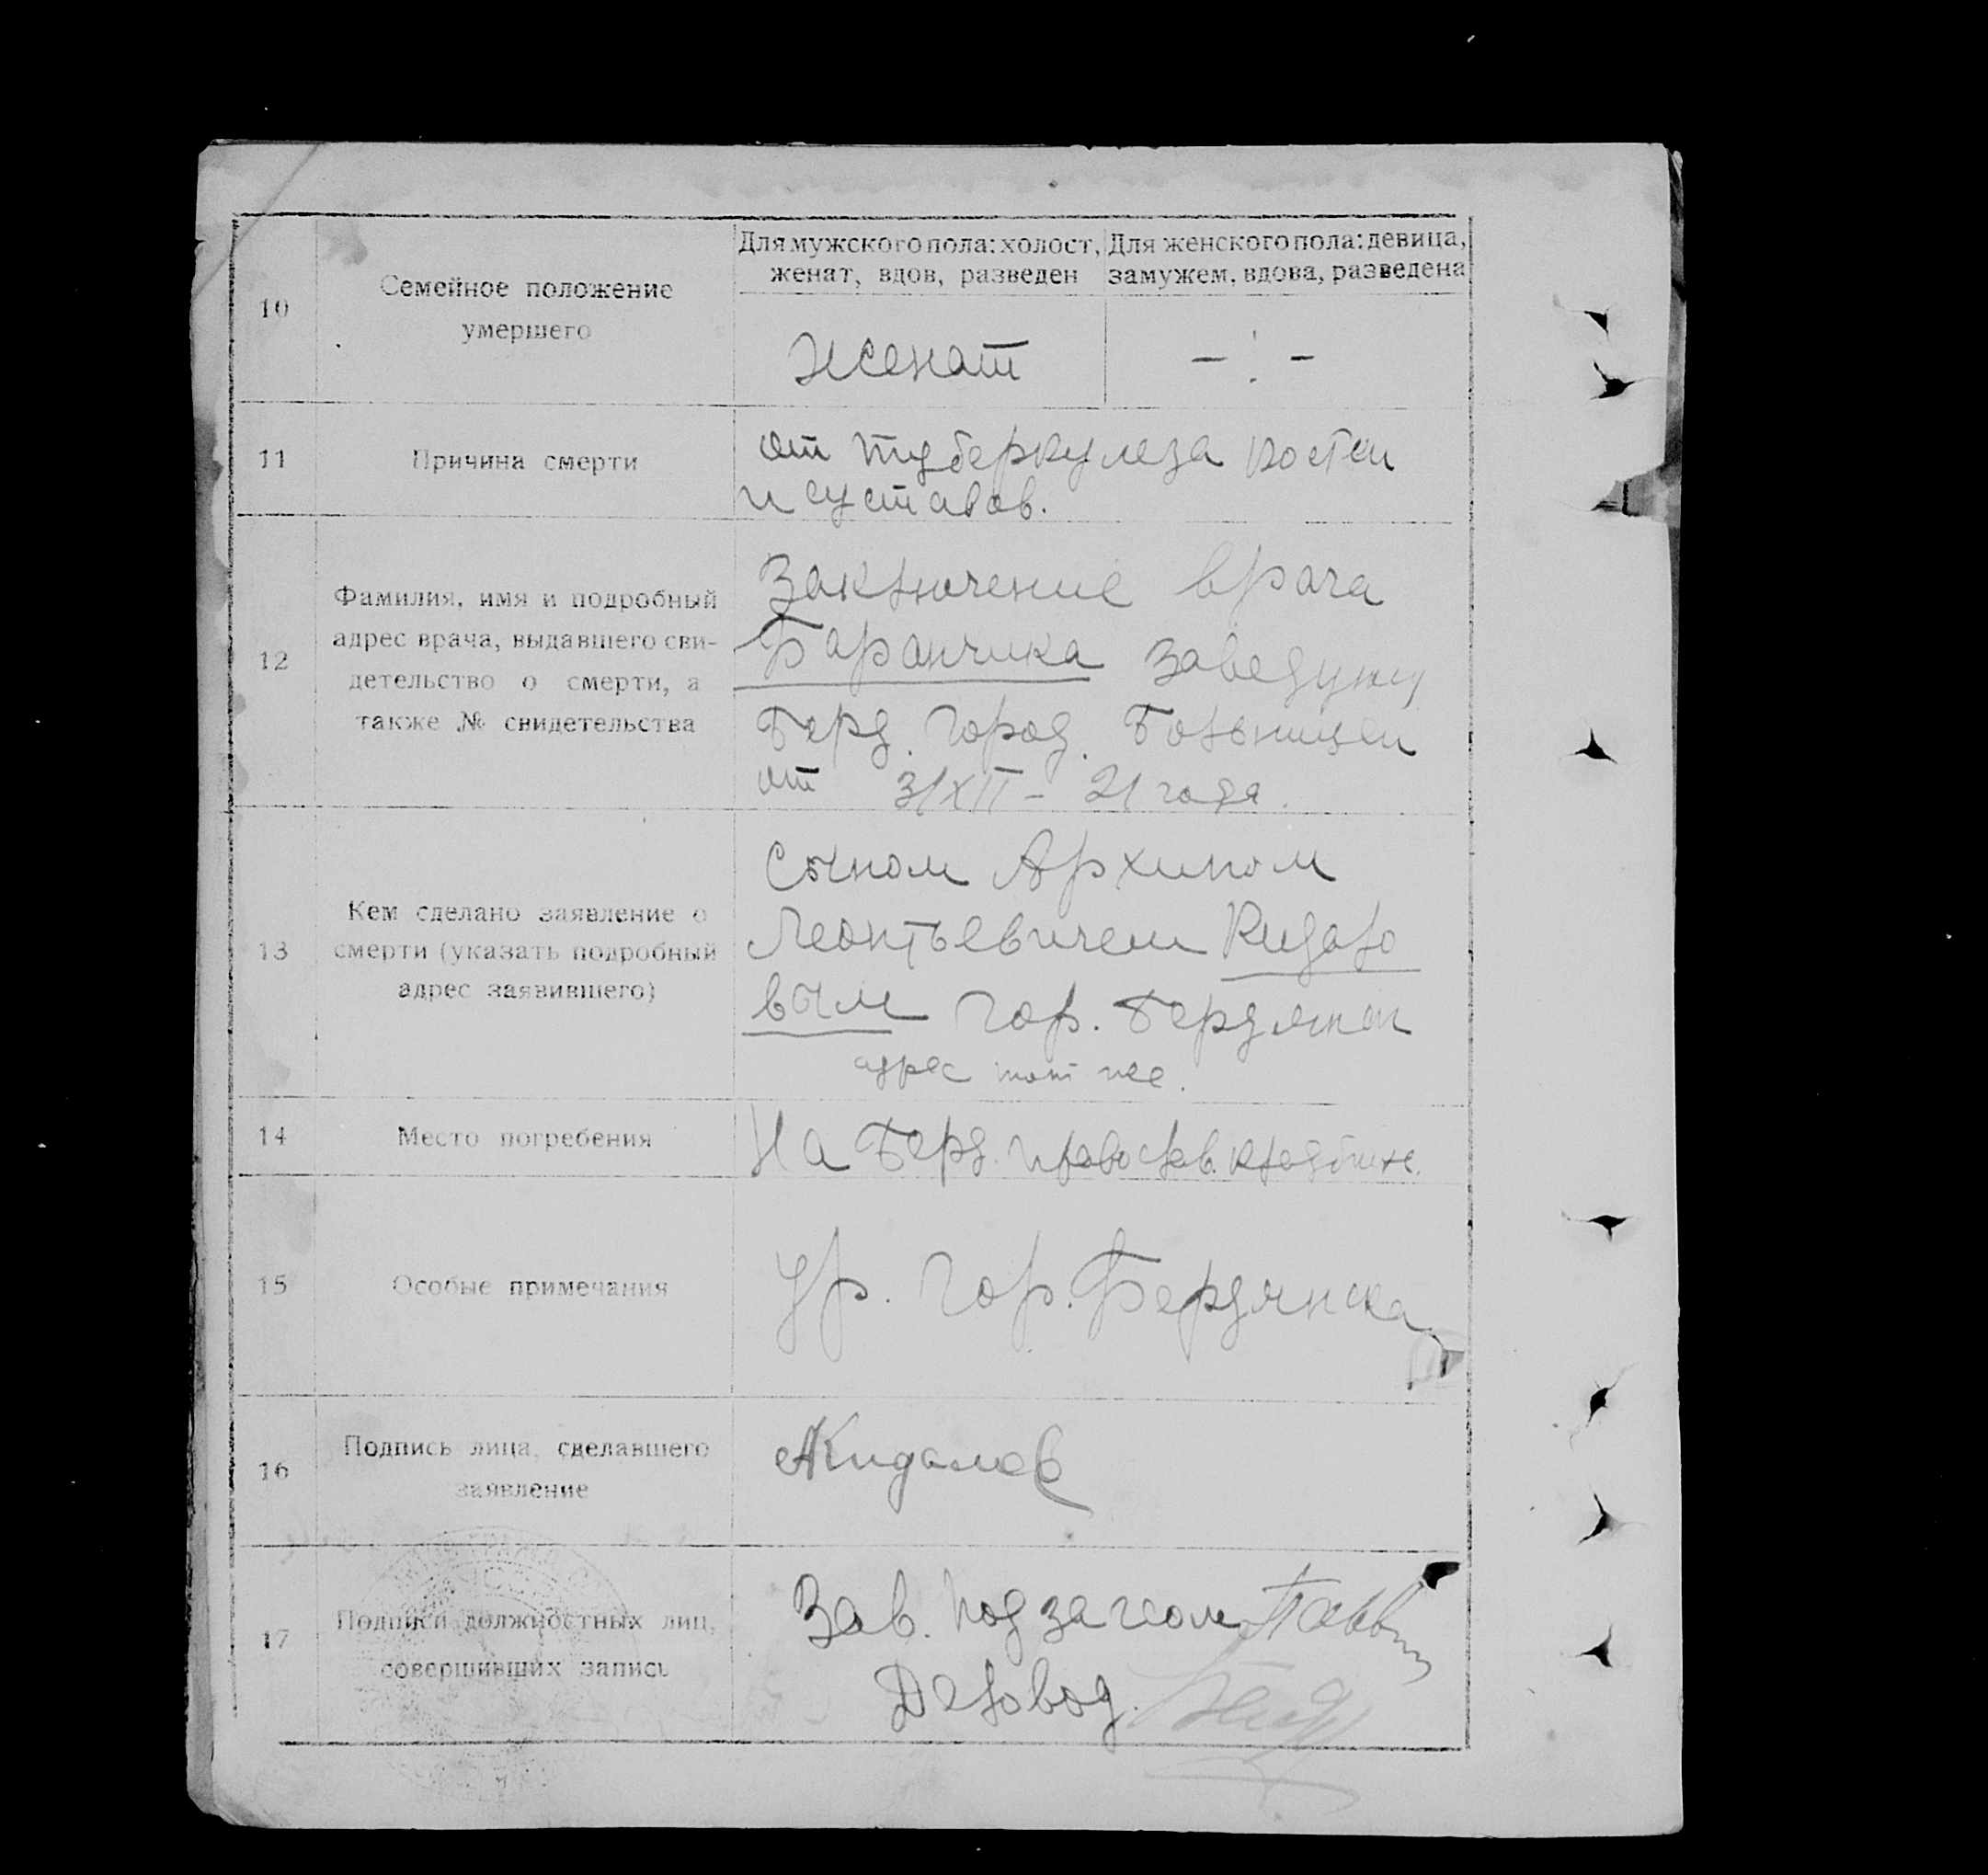 10
Семейное положение
умершего
Для мужского пола: холост,
женат, вдов, разведен
Для женского пола: девица,
замужем, вдова, разведена
Женат
- : -
11
Причина смерти
от туберкулеза костей
и суставов.
12
Фамилия, имя и подробный
адрес врача, выдавшего сви-
детельство о смерти, а
также № свидетельства
Заключение врача
Баранчика заведующ
Берд. Город. Больницей
от 31/XII - 21 года.
13
Кем сделано заявление о
смерти (указать подробный
адрес заявившего)
Сыном Архипом
Леонтьевичем Кидало
вым гор. Бердянск
адрес тот же.
14
Место погребения
На Берд. православ. кладбище.
15
Особые примечания
Ур. гор. Бердянска
16
Подпись лица, сделавшего
заявление
АКидалов
17
Подписи должностных лиц,
совершивших запись
Зав. подзагсом
Деловод.